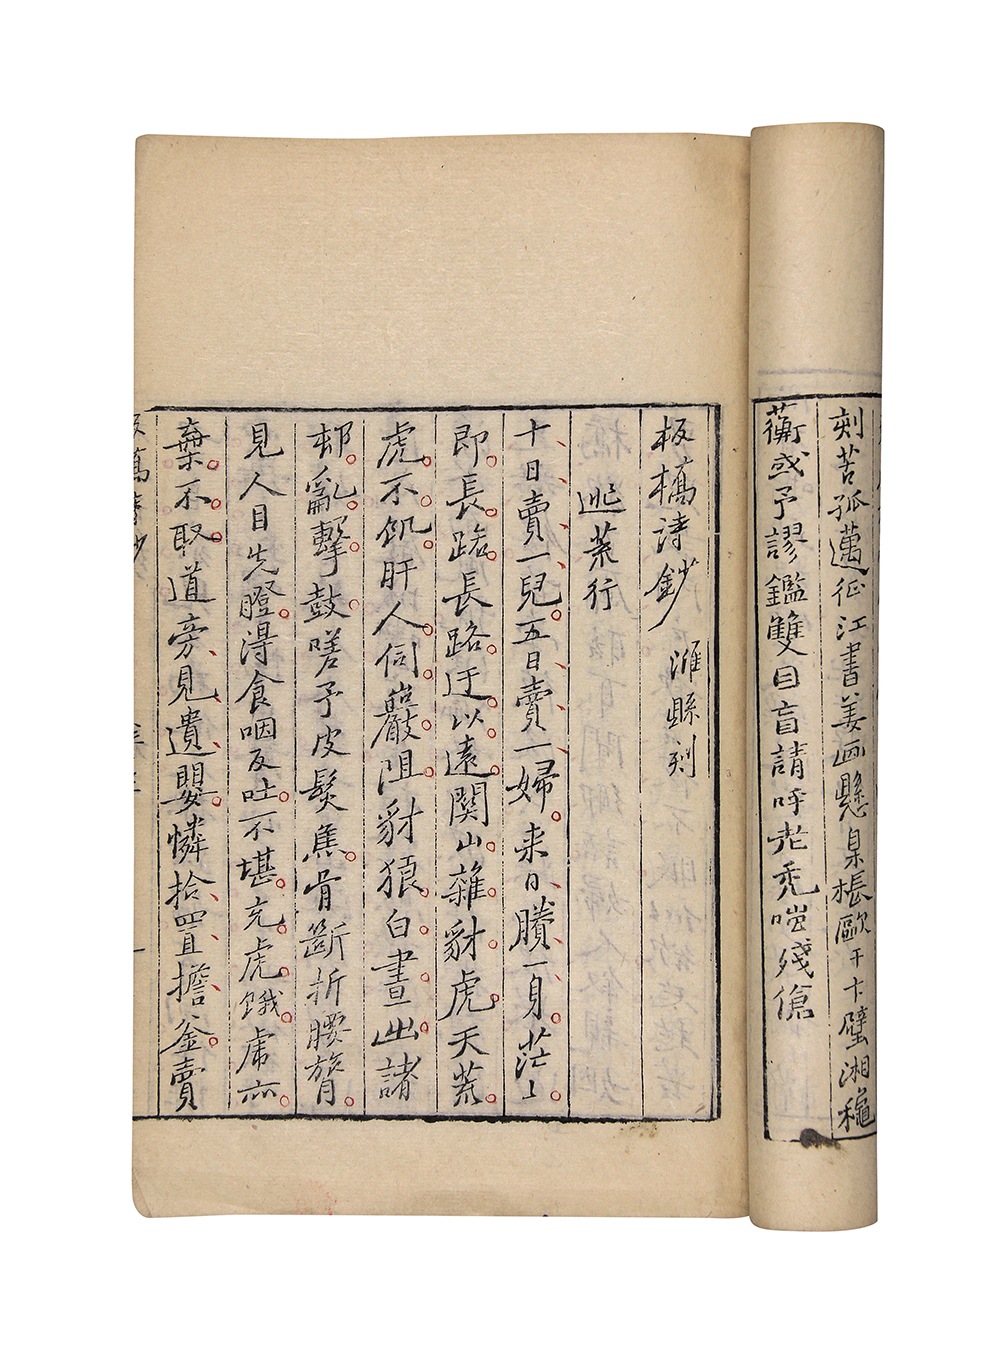 刻苦孤邁征江書姜画懸臬棖歐干卞壁湘龝
蘅或予謬鑑雙目盲請呼老禿殘傖
板橋詩鈔 濰縣刻
逃荒行
十日賣一兒五日賣一婦来日賸一身茫〻
即長路長路迂以遠関山雜豺虎天荒
虎不飢肝人伺巖阻豺狼白晝出諸
邨亂擊鼓嗟予皮髮焦骨斷折腰膂
見人目先瞪得食咽反吐不堪充虎餓虎亦
棄不取道旁見遺嬰憐拾置擔釜賣